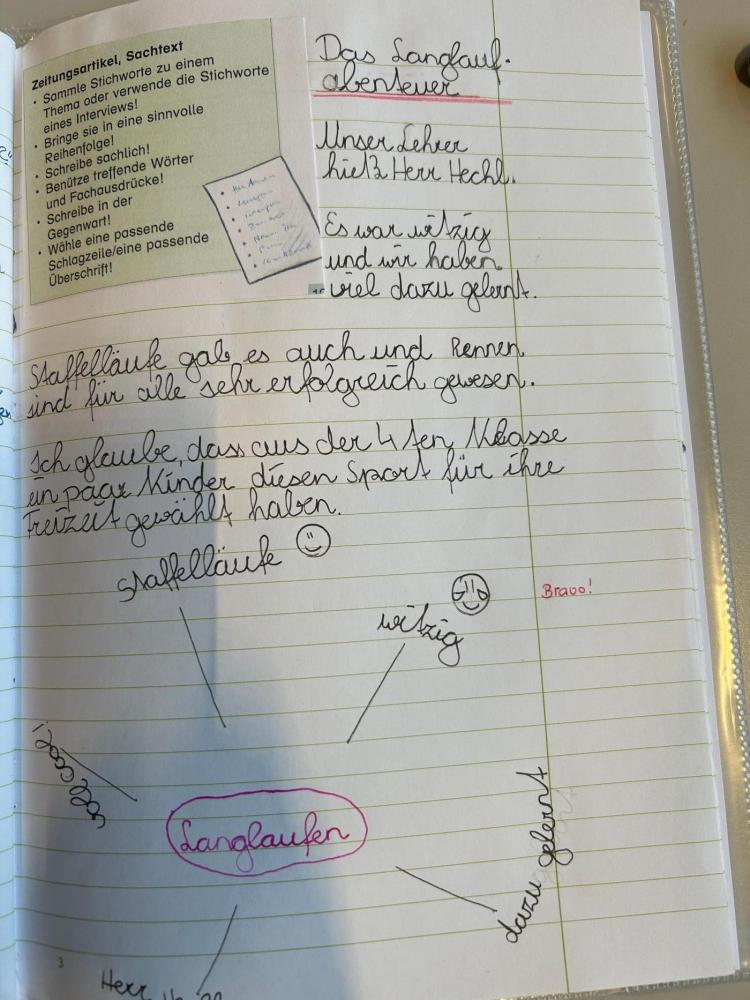 Zeitungsartikel, Sachtext
• Sammle Stichworte zu einem
Thema oder verwende die Stichworte
eines Interviews!
• Bringe sie in eine sinnvolle
Reihenfolge!
• Schreibe sachlich!
• Benütze treffende Wörter
und Fachausdrücke!
• Schreibe in der
Gegenwart!
• Wähle eine passende
Schlagzeile/eine passende
Überschrift!
Das Langlauf-
abenteuer
Unser Lehrer
hieß Herr Hechl.
Es war witzig
und wir haben
viel dazu gelernt.
Staffelläufe gab es auch und Rennen
sind für alle sehr erfolgreich gewesen.
Ich glaube, dass aus der 4 ten Klasse
ein paar Kinder diesen Sport für ihre
Freizeit gewählt haben.
Staffelläufe
witzig
Bravo!
voll cool!
Langlaufen
dazu gelernt
Herr
3